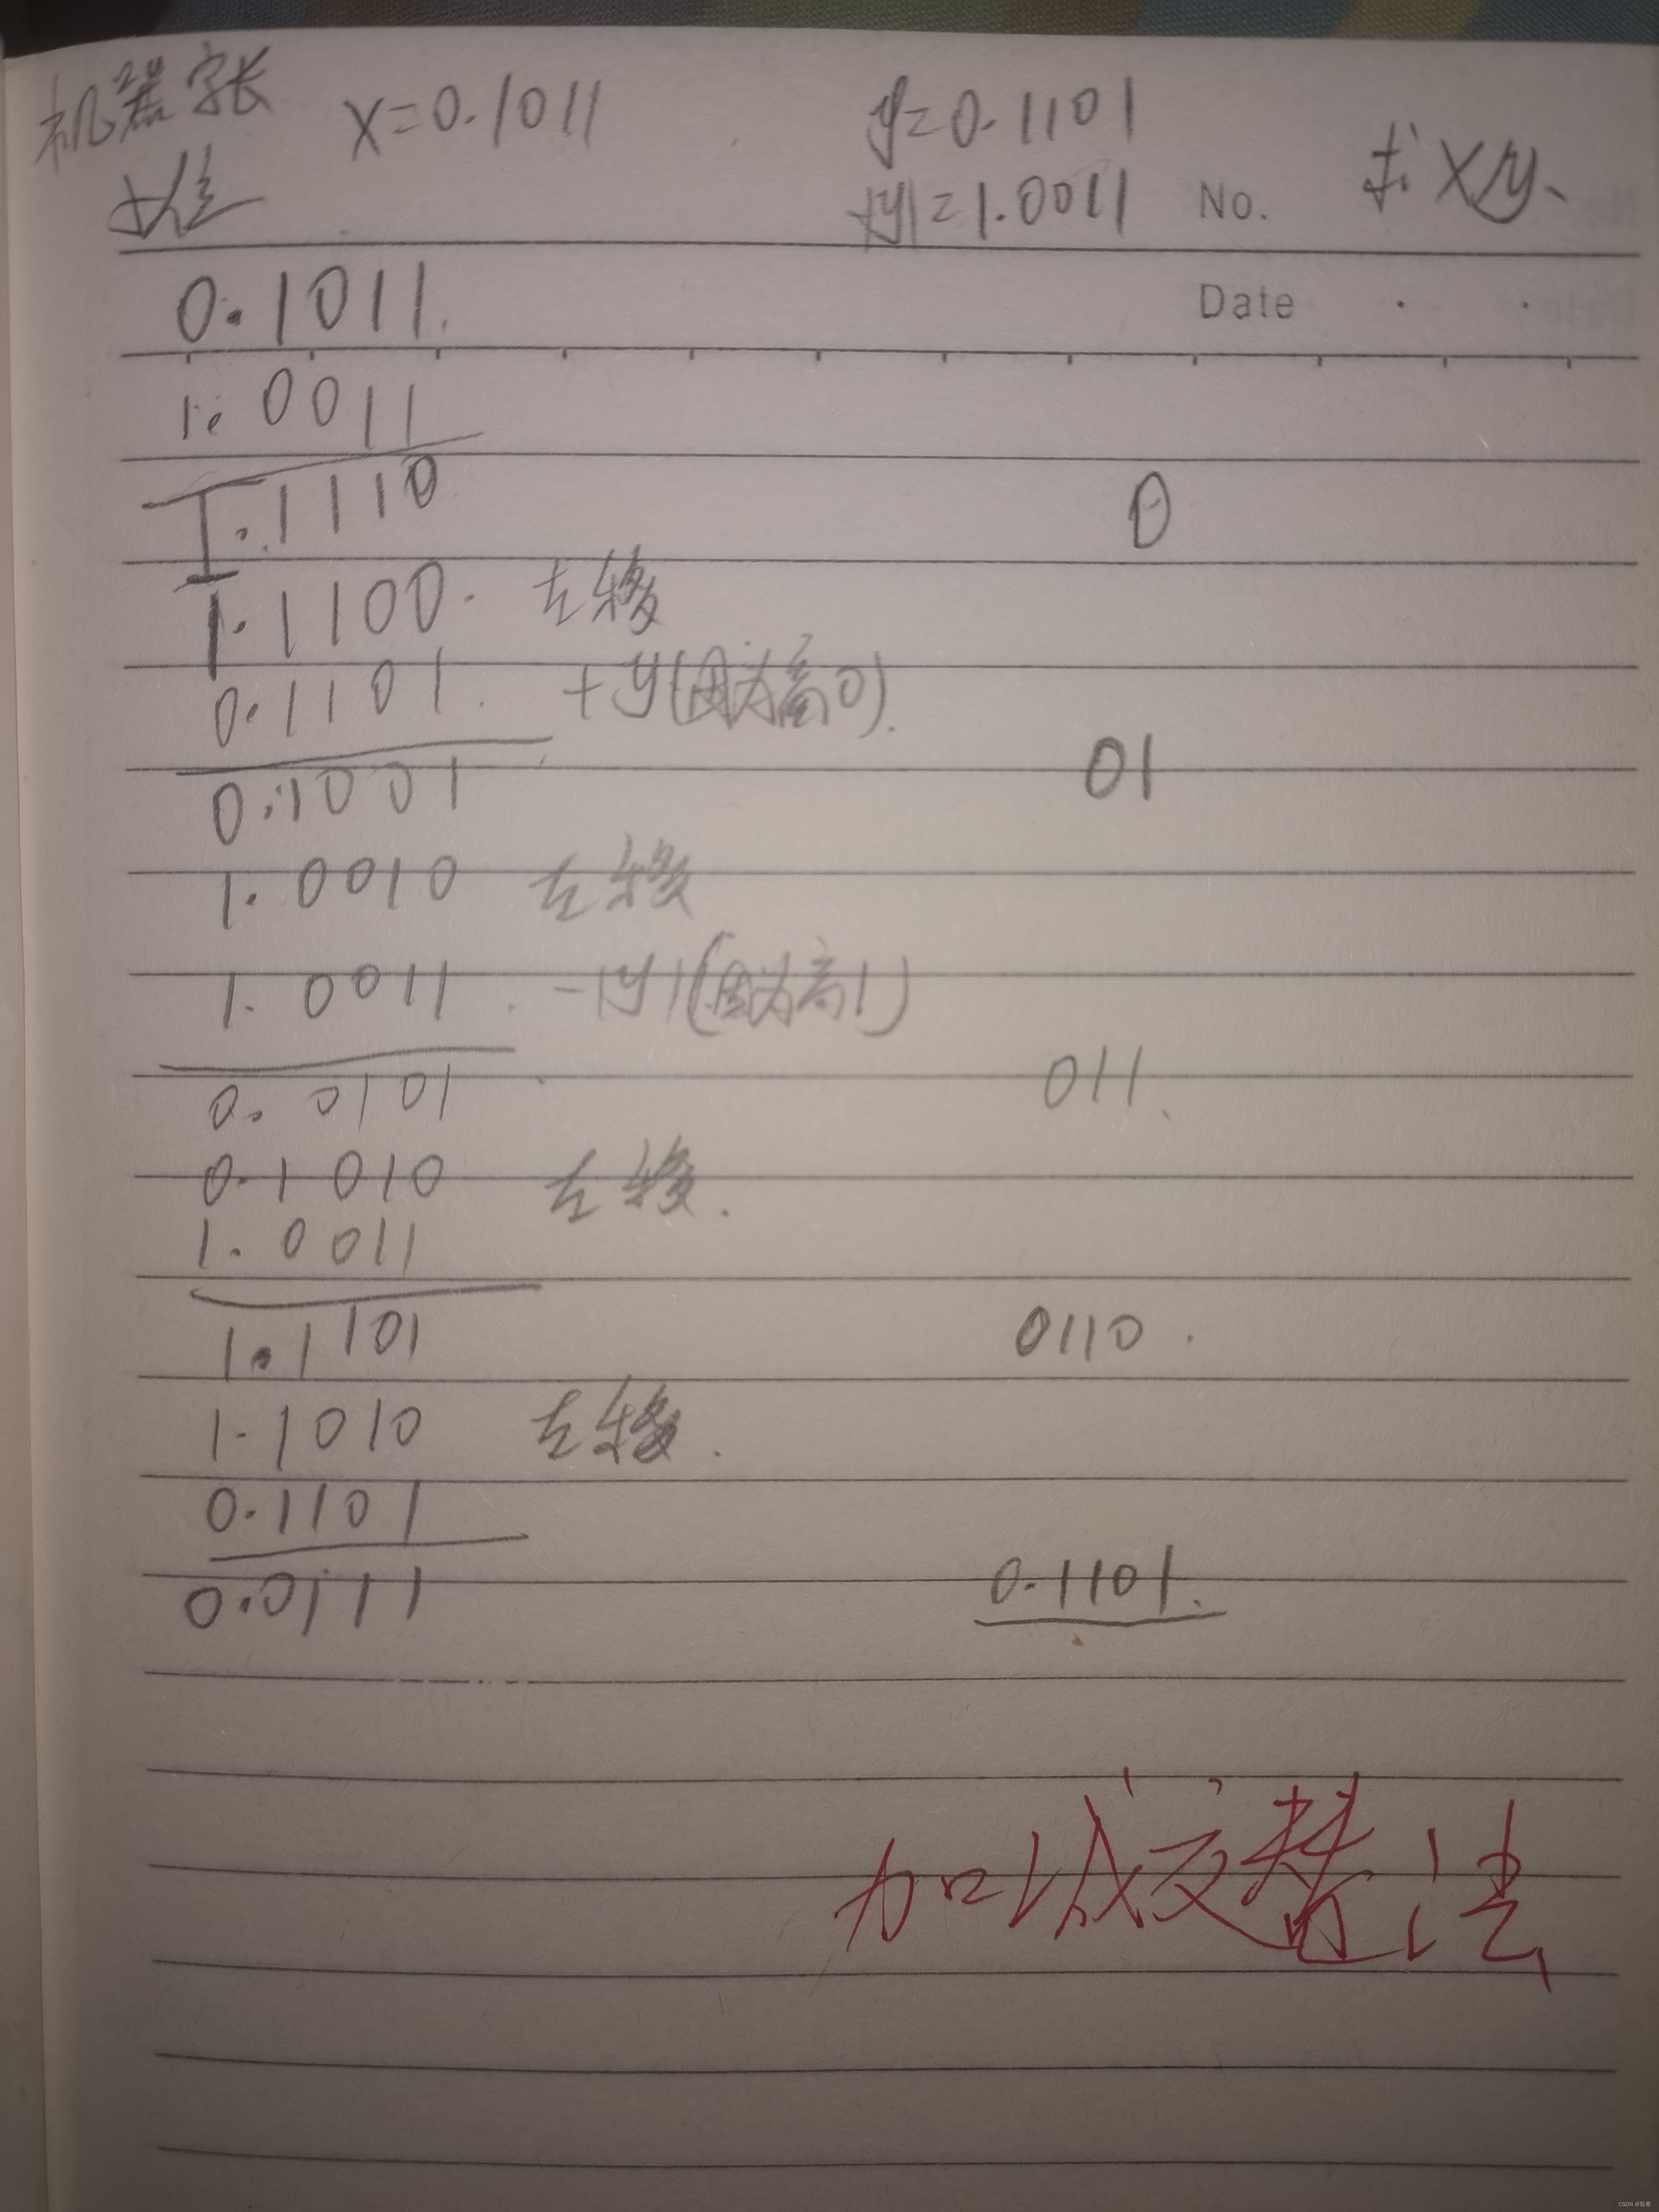 机器字长 x=0.1011 y=0.1101
-|y|=1.0011 No. 求 x/y、
0.1011 Date
1.0011
1.1110 0
1.1100 左移
0.1101 +y(因为商0)
0.1001 01
1.0010 左移
1.0011 -|y|(因为商1)
0.0101 011
0.1010 左移.
1.0011
1.1101 0110
1.1010 左移.
0.1101
0.0111 0.1101
加减交替法